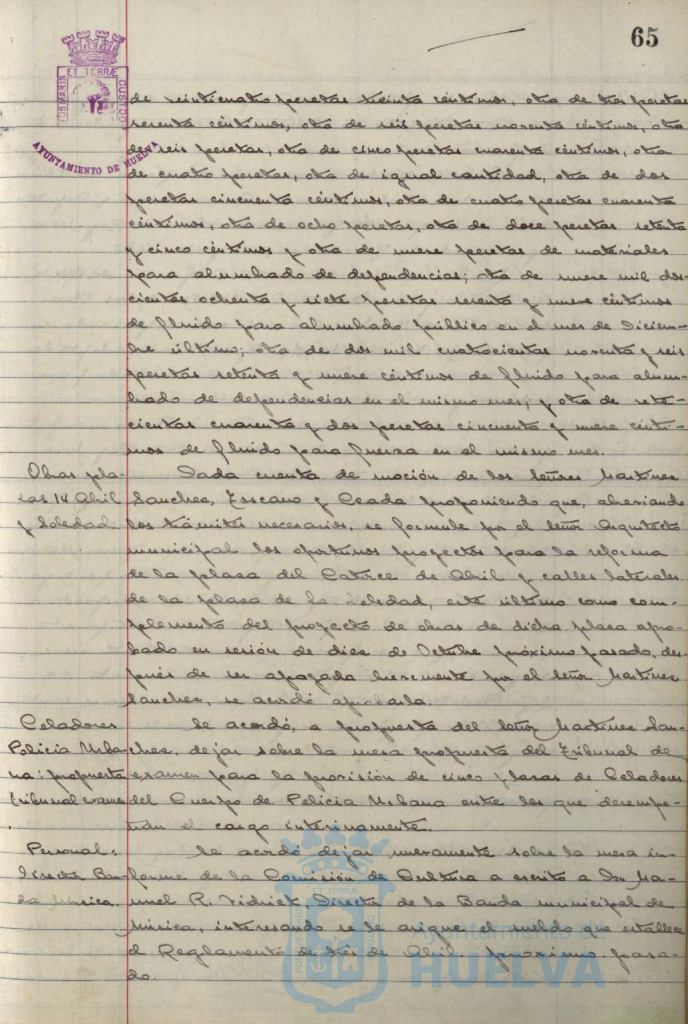 65
ET TERRÆ
AYUNTAMIENTO DE HUELVA
de veinticuatro pesetas treinta céntimos, otra de tres pesetas
sesenta céntimos, otra de seis pesetas noventa céntimos, otra
de seis pesetas, otra de cinco pesetas cuarenta céntimos, otra
de cuatro pesetas, otra de igual cantidad, otra de dos
pesetas cincuenta céntimos, otra de cuatro pesetas cuarenta
céntimos, otra de ocho pesetas, otra de doce pesetas setenta
y cinco céntimos y otra de nueve pesetas de materiales
para alumbrado de dependencias; otra de nueve mil dos-
cientas ochenta y siete pesetas sesenta y nueve céntimos
de fluido para alumbrado público en el mes de Diciem-
bre último; otra de dos mil cuatrocientas noventa y seis
pesetas setenta y nueve céntimos de fluido para alum-
brado de dependencias en el mismo mes; y otra de sete-
cientas cuarenta y dos pesetas cincuenta y nueve cénti-
mos de fluido para fuerza en el mismo mes.
Obras pla-
zas 14 Abril
y Soledad.
Dada cuenta de moción de los Señores Martínez
Sánchez, Toscano y Ceada proponiendo que, abreviando
los trámites necesarios, se formule por el Señor Arquitecto
municipal los oportunos proyectos para la reforma
de la plaza del Catorce de Abril y calles laterales
de la plaza de la Soledad, este último como com-
plemento del proyecto de obras de dicha plaza apro-
bado en sesión de diez de Octubre próximo pasado, des-
pués de ser apoyada brevemente por el Señor Martínez
Sánchez, se acordó aprobarla.
Celadores
Policía Urba-
na: propuesta
tribunal examen
Se acordó, a propuesta del Señor Martínez Sán-
chez, dejar sobre la mesa propuesta del Tribunal de
examen para la provisión de cinco plazas de Celadores
del Cuerpo de Policía Urbana entre los que desempe-
ñan el cargo interinamente.
Personal:
Director Ban-
da Música.
Se acordó dejar nuevamente sobre la mesa in-
forme de la Comisión de Cultura a escrito de Don Ma-
nuel R. Vidriet, Director de la Banda municipal de
Música, interesando se le asigne el sueldo que establece
el Reglamento de tres de Abril próximo pasa-
do.
Ayuntamiento de
HUELVA